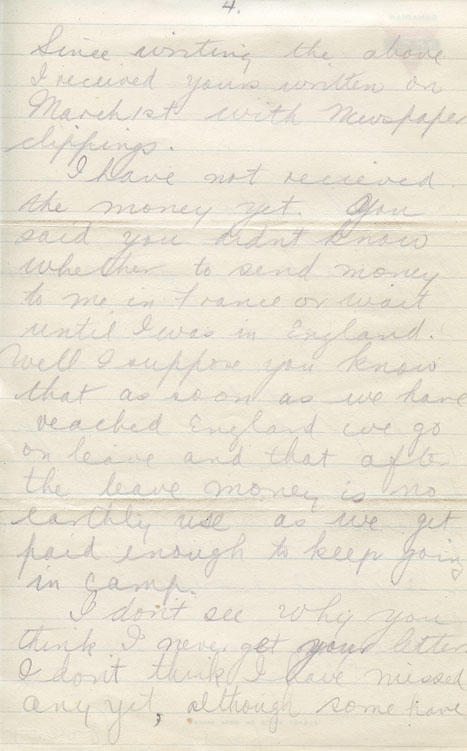 4.
Since writing the above
I received yours written on
March 1st with Newspaper
clippings.
I have not recieved
the money yet. You
said you didn't know
whether to send money
to me in France or wait
until I was in England.
Well I suppose you know
that as soon as we have
reached England we go
on leave and that after
the leave money is no
earthly use as we get
paid enough to keep going
in camp.
I don't see why you
think I never get your letters
I don't think I have missed
any yet, although some have